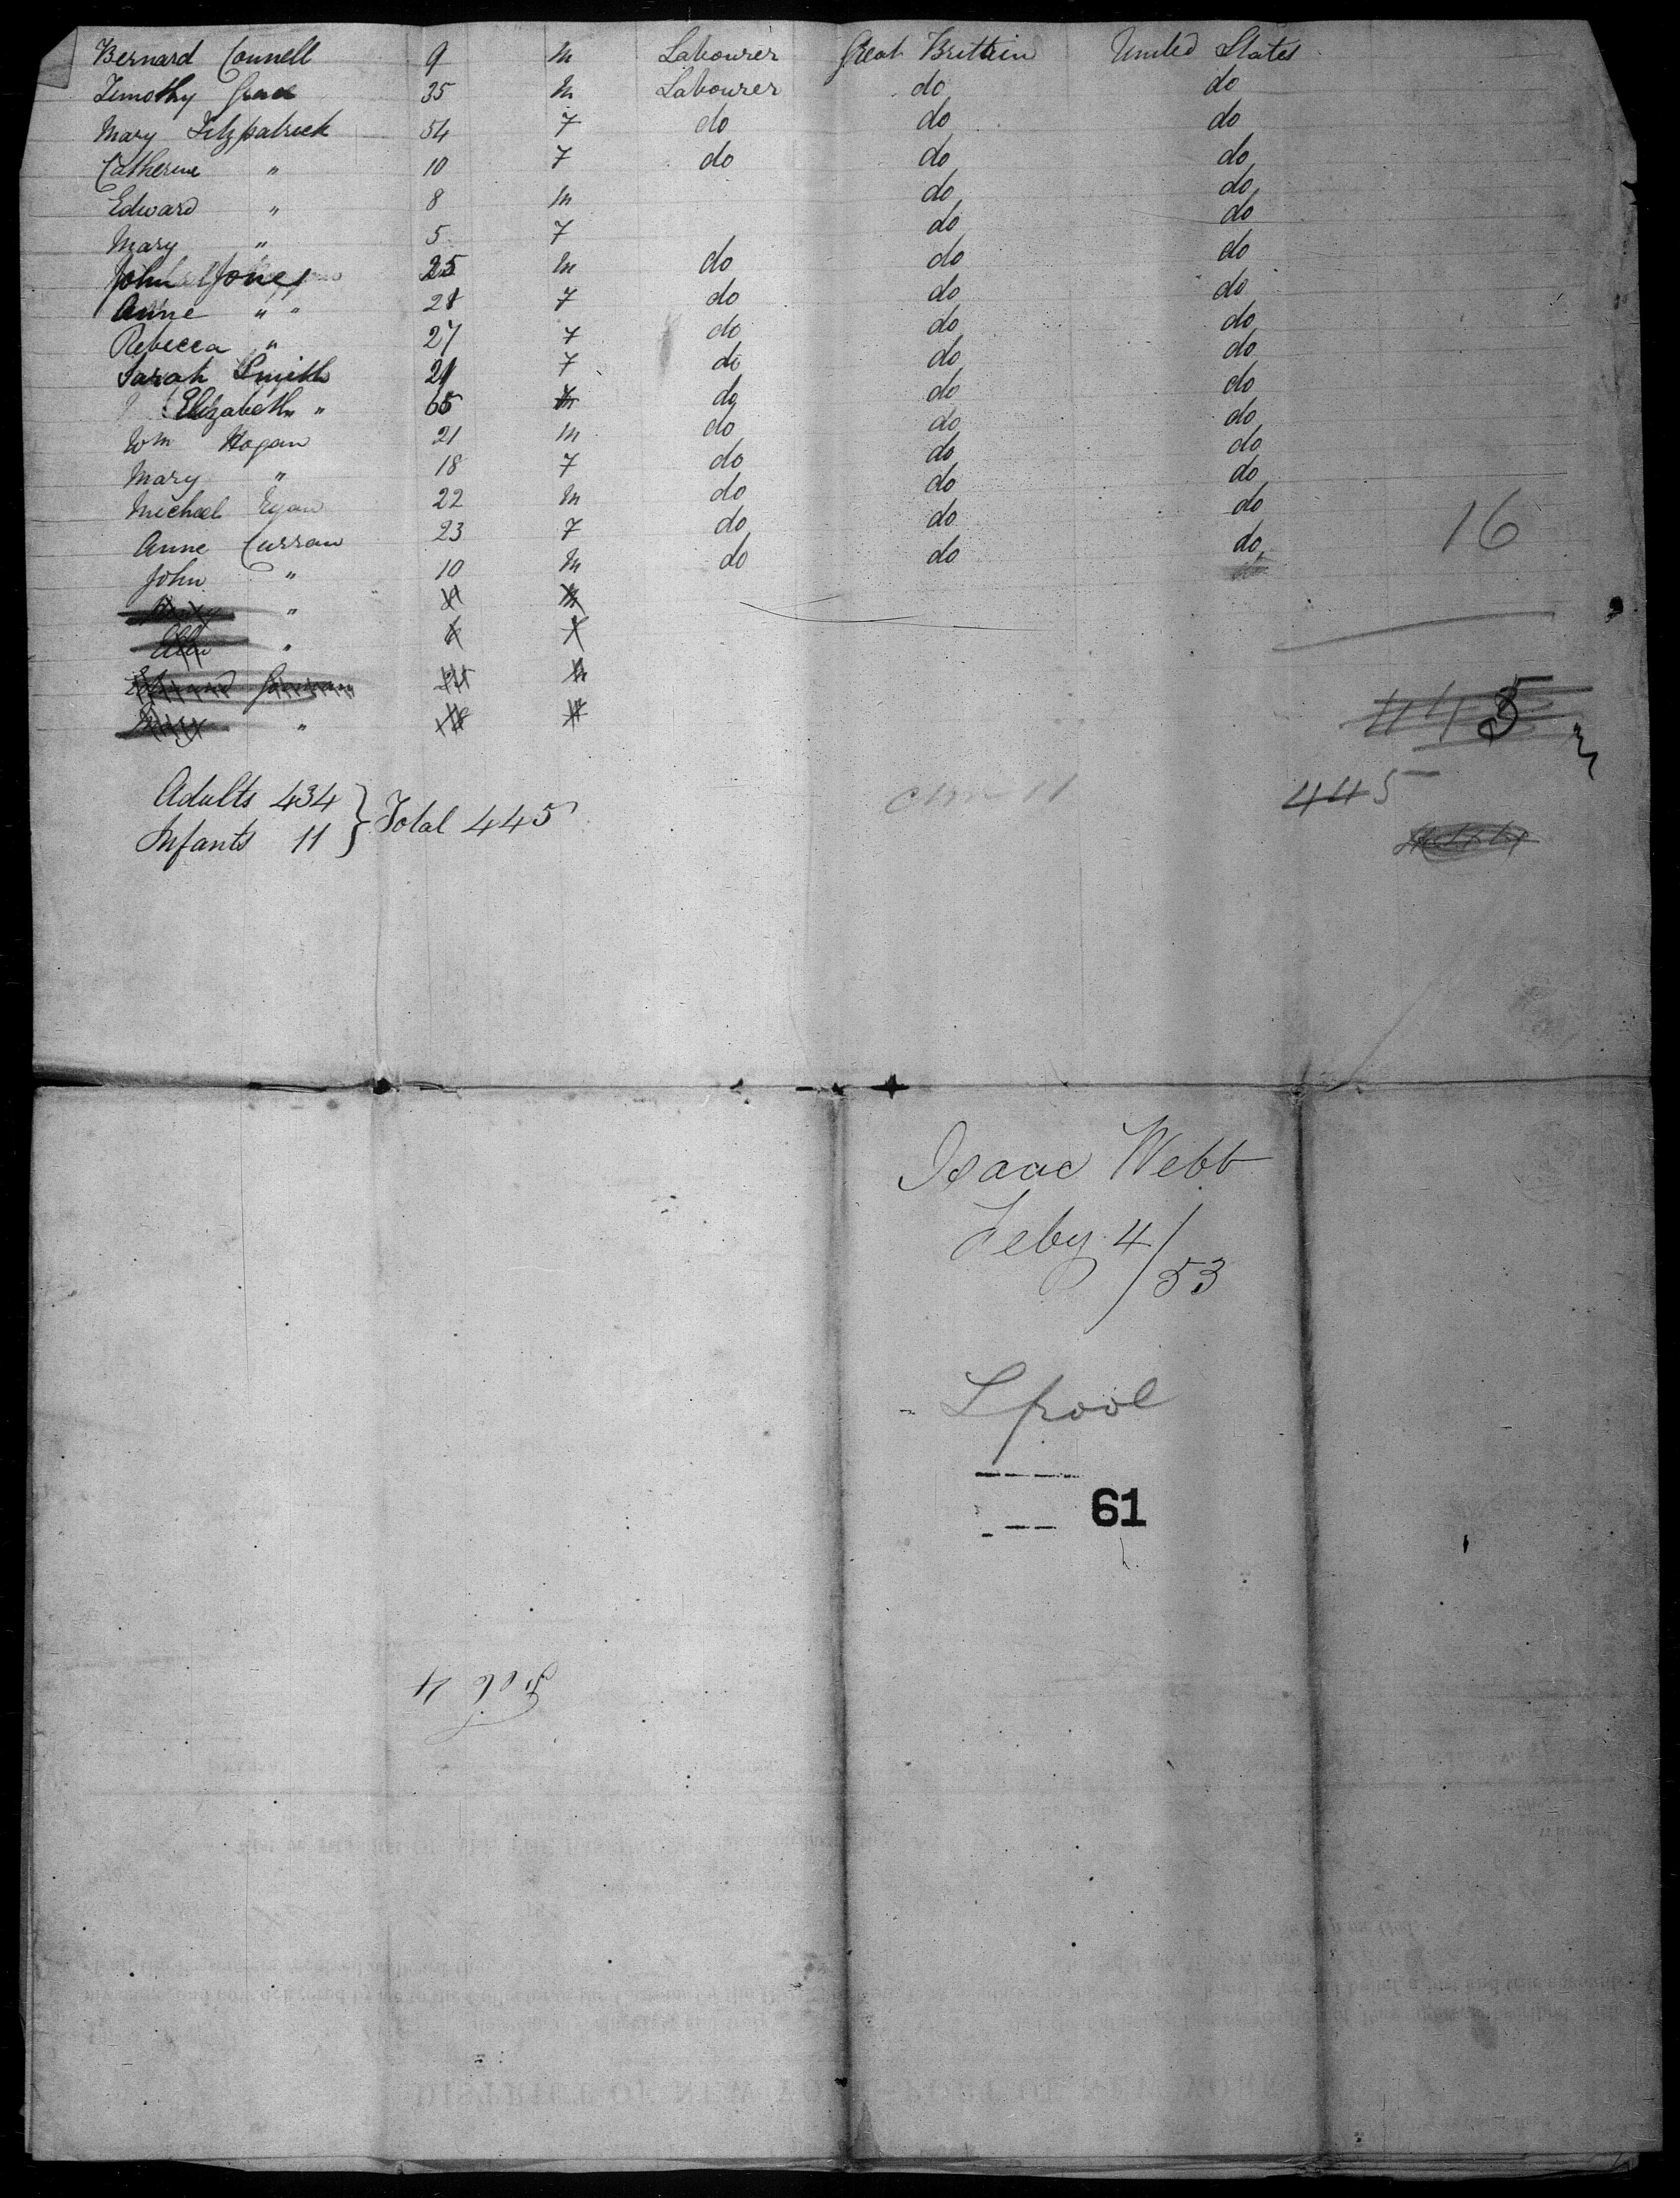 Bernard Connell 9 m Labourer Great Brittein United States
Timothy 35 m Labourer do do
Mary Fitzpatrick 54 f do do do
Catherine " 10 f do do do
Edward " 8 m do do
Mary " 5 f do do
John Jones 25 m do do do
Anne " " 28 f do do do
Rebecca " 27 f do do do
Sarah Smith 21 f do do do
Elizabeth " 65 do do do
Wm Hogan 21 m do do do
Mary " 18 f do do do
Micheal Ryan 22 m do do do
Anne Curran 23 f do do do 16
John " 10 m do do do
" m
Ellen "
m
Mary " 18
445
Adults 434
Infants 11 } Total 445
445
Isaac Webb
Feby 4/53
Lpool
61
Feb 4